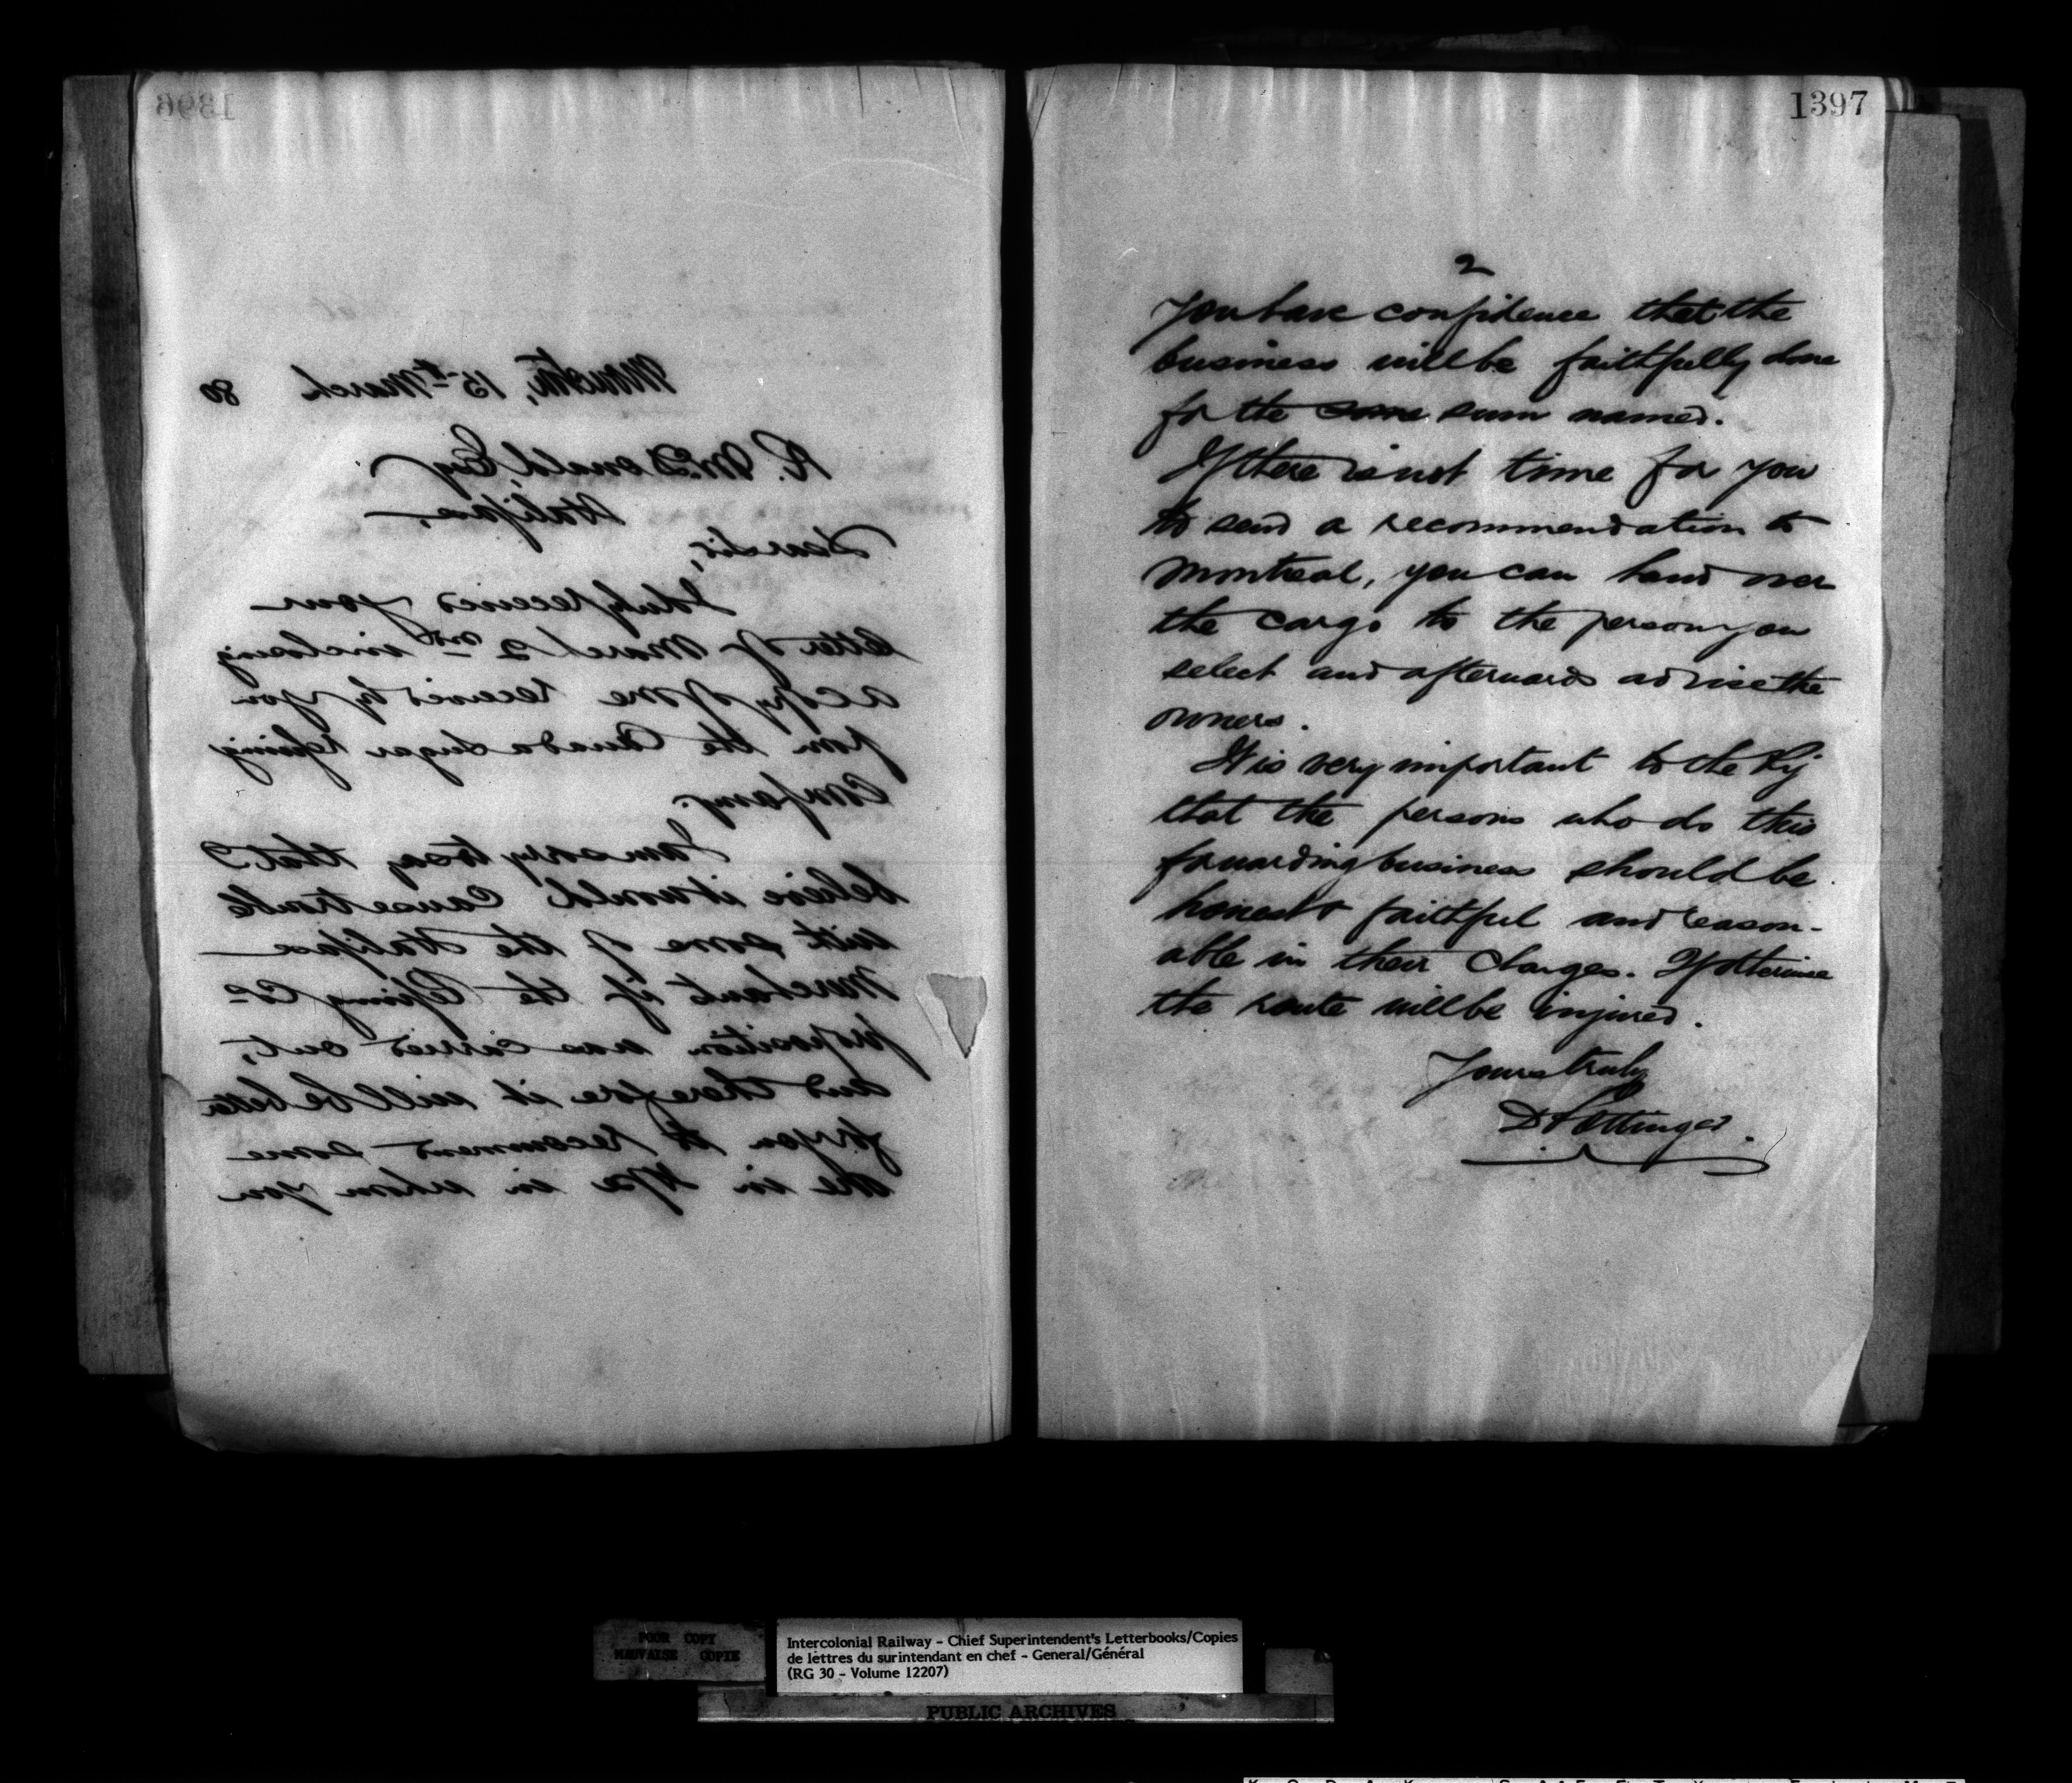 1396
Moncton, 15th March 80
R. McDonald, Esq
Halifax,
Dear Sir,
I duly received your
letter of March 2nd inclosing
a copy of one received by you
from the Canada Sugar Refining
Company.
I am sorry to say that I
believe it would cause trouble
with some of the Halifax
Merchants if the Refining Co
proposition was carried out,
and therefore it will be better
for you to recommend some
one in Hfx in whom you
1397
2
you have confidence that the
business will be faithfully done
for the same sum named.
If there is not time for you
to send a recommendation to
Montreal, you can hand over
the cargo to the person you
select and afterwards advise the
owners.
It is very important to the Ry
that the persons who do this
forwarding business should be
honest & faithful and reason-
able in their charges. If otherwise
the route will be injured.
Yours truly
D Pottinger.
POOR COPY
MAUVAISE COPIE
Intercolonial Railway - Chief Superintendent's Letterbooks/Copies
de lettres du surintendant en chef - General/Général
(RG 30 - Volume 12207)
PUBLIC ARCHIVES